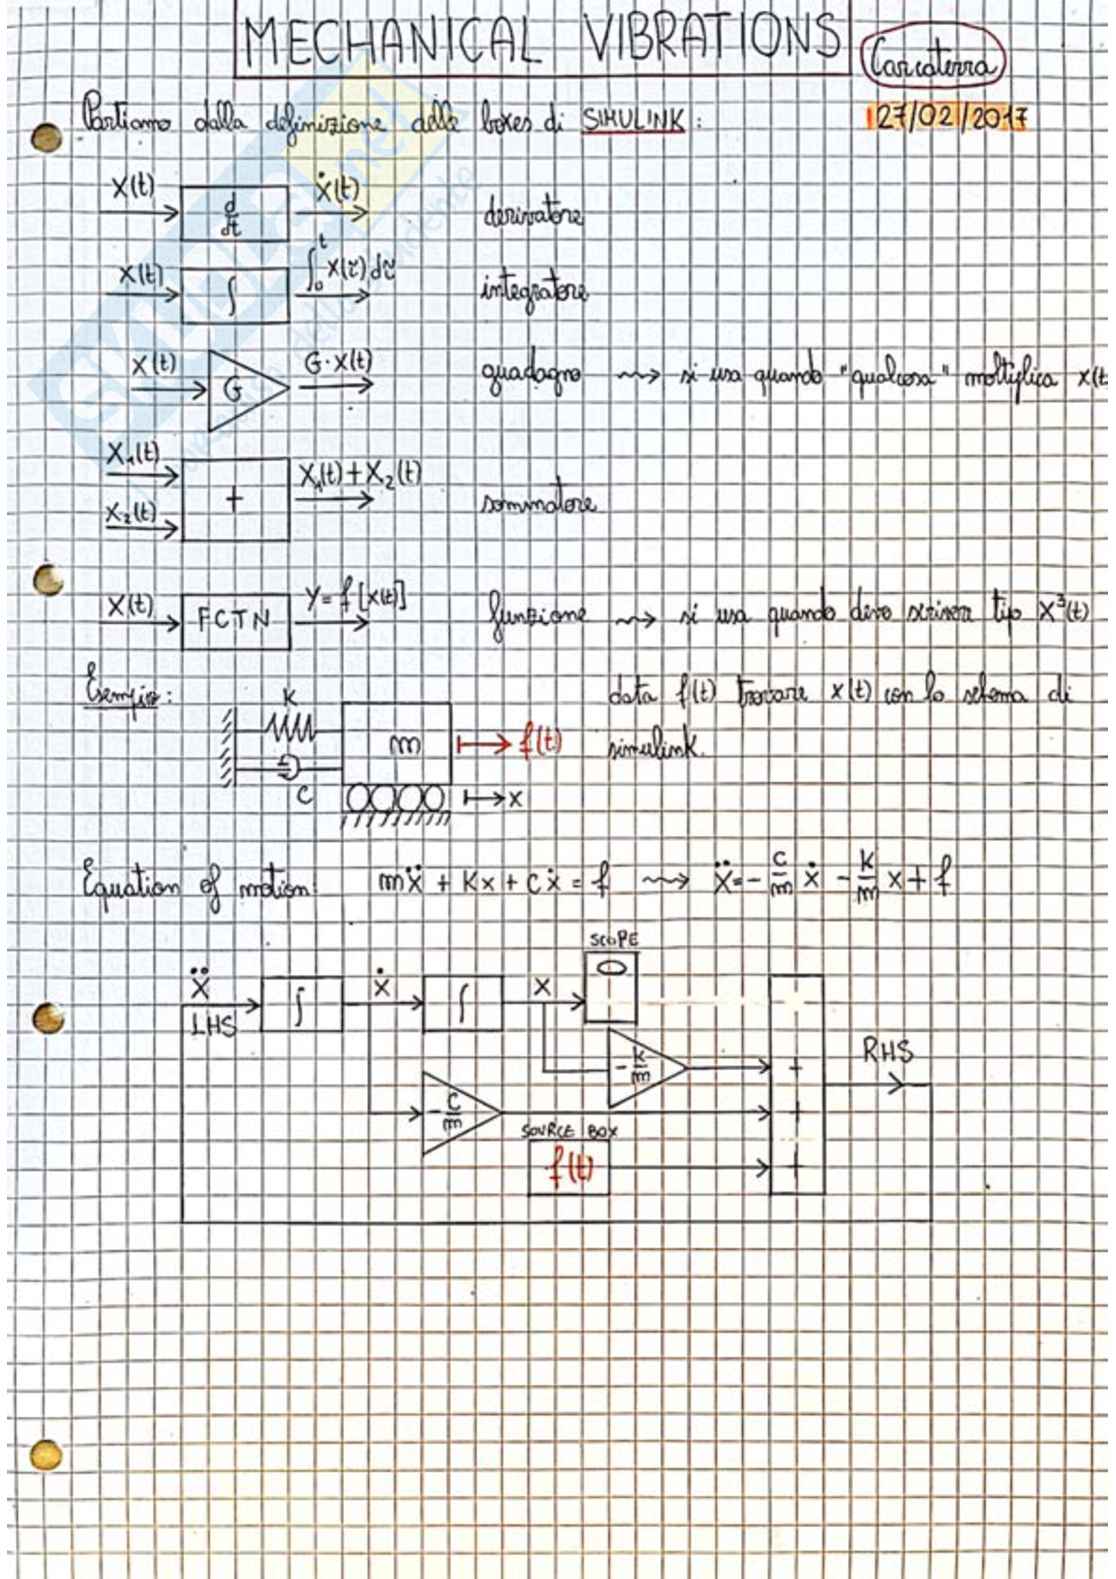 MECHANICAL VIBRATIONS
Carcaterra
27/02/2017
Partiamo dalla definizione delle boxes di SIMULINK:
X(t) d/dt Ẋ(t) derivatore
X(t) ∫ ∫₀ᵗ X(τ)dτ integratore
X(t) G G·X(t) guadagno ⇝ si usa quando "qualcosa" moltiplica x(t
X₁(t)
X₂(t) + X₁(t)+X₂(t) sommatore
X(t) FCTN Y=f[x(t)] funzione ⇝ si usa quando devo scrivere tipo X³(t)
Esempio:
K
m
f(t)
C
x
data f(t) trovare x(t) con lo schema di
simulink.
Equation of motion: mẌ + Kx + Cẋ = f ⇝ Ẍ=-C/m ẋ -K/m x+f
SCOPE
Ẍ ∫ ẋ ∫ X
LHS
-K/m + RHS
-C/m +
SOURCE BOX
f(t) +